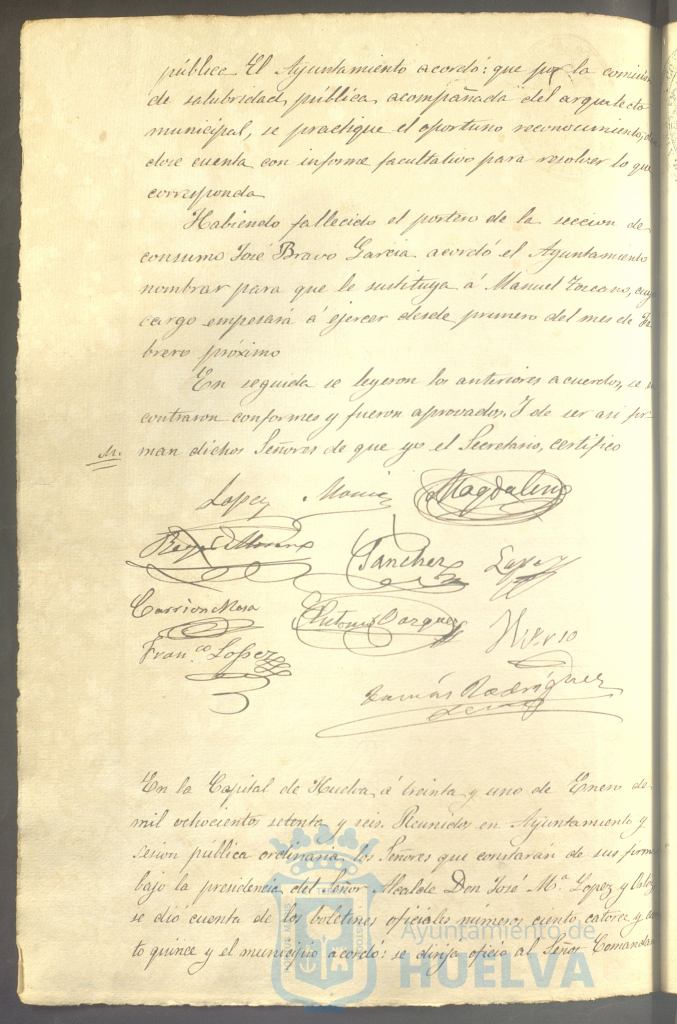 pública El Ayuntamiento acordó: que por la comision
de salubridad pública, acompañada del arquitecto
municipal, se practique el oportuno reconocimiento,
dose cuenta con informe facultativo para resolver lo que
corresponda
Habiendo fallecido el portero de la seccion de
consumo José Bravo Garcia acordó el Ayuntamiento
nombrar para que le sustituya á Manuel Toscano, cuyo
cargo empesará á ejercer desde primero del mes de Fe
brero próximo
En seguida se leyeron los anteriores acuerdos, se
contraron conformes y fueron aprovados. Y de ser asi fir
man dichos Señores de que yo el Secretario, certifico
Lopez Magdaleno
Sanchez
Carrion Mesa Antonio Vazquez
Fran.co Lopez
Tomás Rodriguez
En la Capital de Huelva á treinta y uno de Enero de
mil ochocientos setenta y seis. Reunidos en Ayuntamiento y
sesion pública ordinaria los Señores que constarán de sus firmas
bajo la presidencia del Señor Alcalde Don José M.ª Lopez y
se dió cuenta de los boletines oficiales números ciento catorce y cien
to quince y el municipio acordó: se dirija oficio al Señor Comandan
Ayuntamiento de
HUELVA